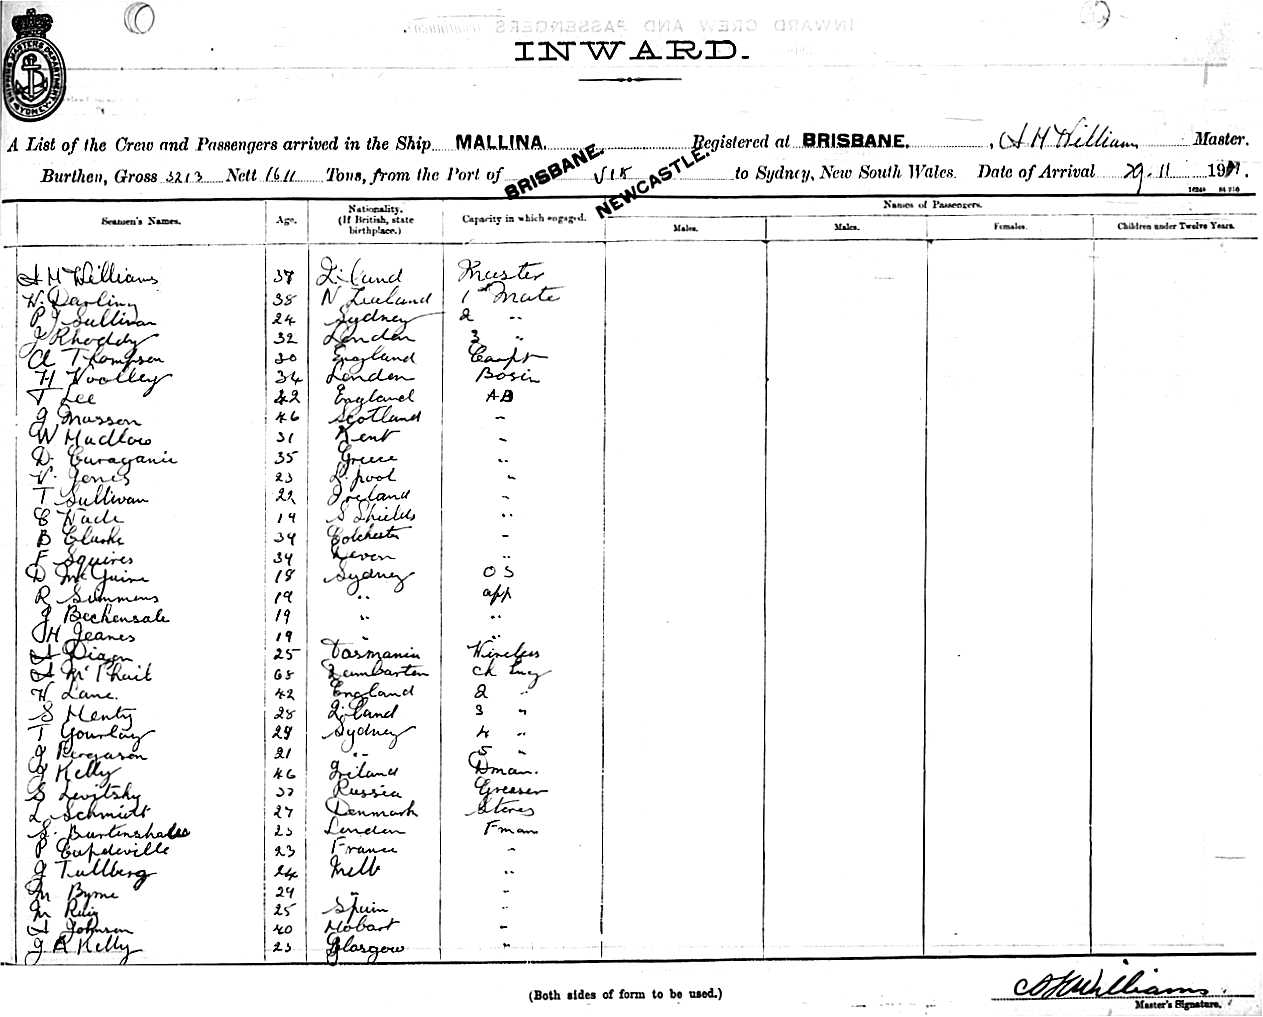 INWARD.
A List of the Crew and Passengers arrived in the Ship MALLINA. Registered at BRISBANE. , A H Williams Master.
Burthen, Gross 3213 Nett 1611 Tons, from the Port of BRISBANE. via NEWCASTLE. to Sydney, New South Wales. Date of Arrival 29.11 19
Seamen's Names. Age. Nationality. (If British, state birthplace.) Capacity in which engaged. Names of Passengers.
Males. Males. Females. Children under Twelve Years.
A H Williams 37 Master
W. Darling 38 N Zealand 1st Mate
P J Sullivan 24 Sydney 2 "
J Rhoddy 32 London 3 "
A Thompson 30 England Carpt
H Woolley 34 London Bosin
T Lee 42 England AB
J Masson 46 Scotland "
W Madlow 31 Kent "
D. 35 Greece "
V. Jones 23 L.pool "
T Sullivan 22 Ireland "
C Wade 19 S Shields "
B Clarke 34 Colchester "
F Squires 34 Devon "
D McGuire 18 Sydney OS
R Simmons 19 " app
J Beckensale 19 " "
H Jeanes 19 " "
A Dixon 25 Tasmania Wireless
A McPhail 68 Dumbarton Ch Eng
H Lane. 42 England 2 "
S Henty 28 3 "
T Gourlay 29 Sydney 4 "
J Ferguson 21 " 5 "
J Kelly 46 Ireland Dman.
S Levitsky 37 Russia Greaser
L Schmidt 27 Denmark Stores
S. Burtenshales 23 London Fman
P Capdeville 23 France "
J Tullberg 24 Melb "
M Byrne 29 " "
M Ruiz 25 Spain "
A Johnson 40 Hobart "
J R Kelly 23 Glasgow "
(Both sides of form to be used.)
A H Williams.
Master's Signature.